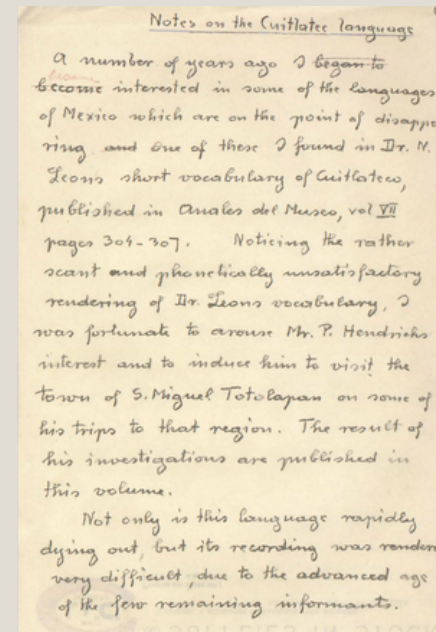 Notes on the Cuitlatec language
A number of years ago I began to
became
become interested in some of the languages
of Mexico which are on the point of disappe
ring and one of these I found in Dr. N.
Leons short vocabulary of Cuitlateco,
published in Anales del Museo, vol VII
pages 304-307. Noticing the rather
scant and phonetically unsatisfactory
rendering of Dr. Leons vocabulary, I
was fortunate to arouse Mr. P. Hendrichs
interest and to induce him to visit the
town of S. Miguel Totolapan on some of
his trips to that region. The result of
his investigations are published in
this volume.
Not only is this language rapidly
dying out, but its recording was render
very difficult, due to the advanced age
of the few remaining informants.